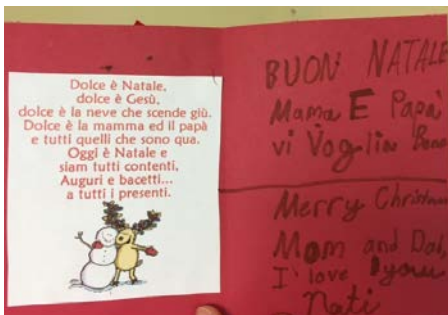 Dolce è Natale,
dolce è Gesù,
dolce è la neve che scende giù.
Dolce è la mamma ed il papà
e tutti quelli che sono qua.
Oggi è Natale e
siam tutti contenti,
Auguri e bacetti...
a tutti i presenti.
BUON NATALE
Mama E Papà
vi Voglio Bene
Merry Christmas
Mom and Dad,
I love you
Nati